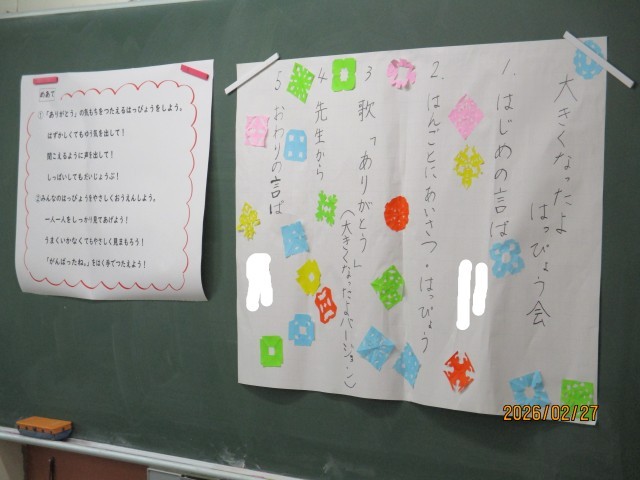 めあて
①「ありがとう」の気もちをつたえるはっぴょうをしよう。
はずかしくてもゆう気を出して！
聞こえるように声を出して！
しっぱいしてもだいじょうぶ！
②みんなのはっぴょうをやさしくおうえんしよう。
一人一人をしっかり見てあげよう！
うまくいかなくてもやさしく見まもろう！
「がんばったね。」をはく手でつたえよう！
大きくなったよ
はっぴょう会
1. はじめの言ば
2. はんごとにあいさつ・はっぴょう
3 歌「ありがとう」
（大きくなったよバージョン）
4 先生から
5 おわりの言ば
2026/02/27